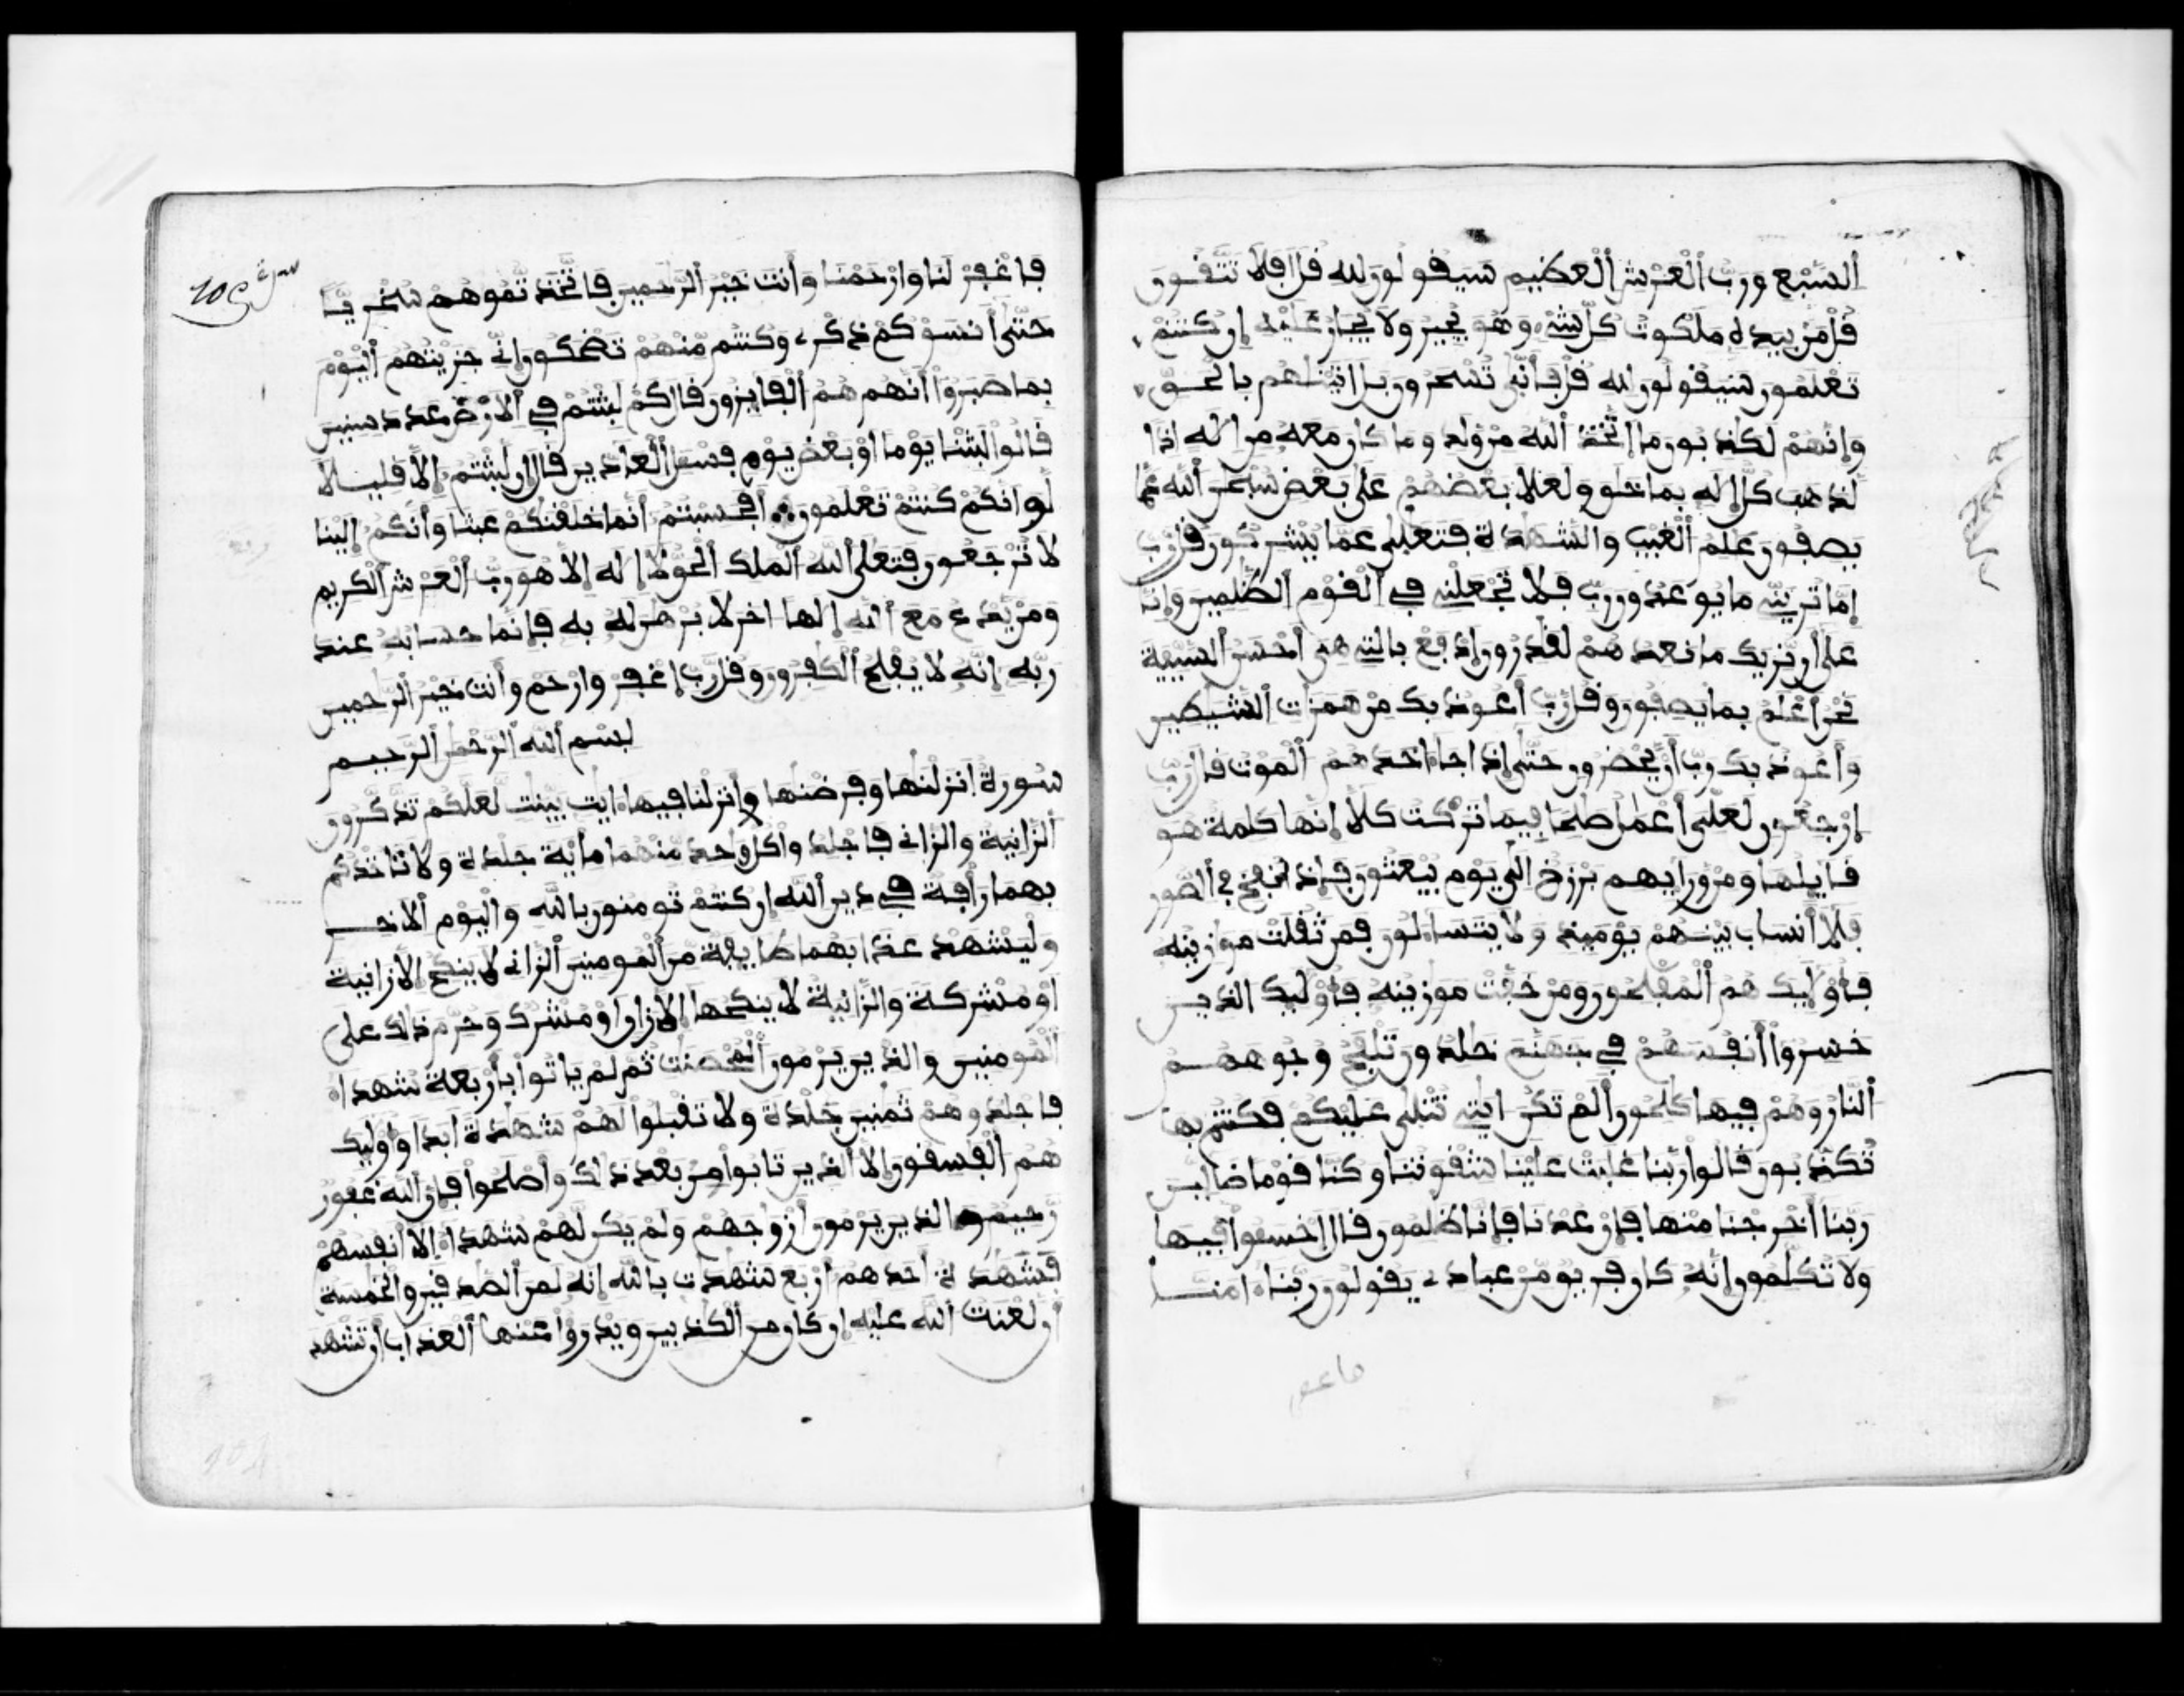 السبع ورب العرش العظيم سيقولون لله قل افلا تتقون
قل من بيده ملكوت كل شىء وهو يجير ولا يجار عليه إن كنتم
تعلمون سيقولون لله قل فأنى تسحرون بل اتينهم بالحق
وإنهم لكذبون ما اتخذ الله من ولد وما كان معه من إله إذا
لذهب كل إله بما خلق ولعلا بعضهم على بعض سبحن الله عما
يصفون علم الغيب والشهدة فتعلى عما يشركون قل رب
إما ترينى ما يوعدون رب فلا تجعلنى في القوم الظلمين وإنا
على أن نريك ما نعدهم لقدرون إدفع بالتى هى أحسن السيية
نحن أعلم بما يصفون وقل رب أعوذ بك من همزت الشيطين
وأعوذ بك رب أن يحضرون حتى إذا جا احدهم الموت قال رب
إرجعون لعلى أعمل صلحا فيما تركت كلا إنها كلمة هو
قايلها ومن ورايهم برزخ الى يوم يبعثون فإذا نفخ في الصور
فلا أنساب بينهم يوميذ ولا يتساءلون فمن ثقلت موزينه
فأوليك هم المفلحون ومن خفت موزينه فأوليك الذين
خسروا أنفسهم في جهنم خلدون تلفح وجوههم
النار وهم فيها كلحون ألم تكن ايتى تتلى عليكم فكنتم بها
تكذبون قالوا ربنا غلبت علينا شقوتنا وكنا قوما ضالين
ربنا أخرجنا منها فإن عدنا فإنا ظلمون قال إخسئوا فيها
ولا تكلمون إنه كان فريق من عبادى يقولون ربنا ءامنا
فاغفر لنا وارحمنا وأنت خير الرحمين فاتخذتموهم سخريا
حتى أنسوكم ذكرى وكنتم منهم تضحكون إنى جزيتهم اليوم
بما صبروا أنهم هم الفايزون قال كم لبثتم في الارض عدد سنين
قالوا لبثنا يوما او بعض يوم فسل العادين قال إن لبثتم إلا قليلا
لو انكم كنتم تعلمون أفحسبتم أنما خلقنكم عبثا وأنكم إلينا
لا ترجعون فتعلى الله الملك الحق لا إله إلا هو رب العرش الكريم
ومن يدع مع الله إلها اخر لا برهن له به فإنما حسابه عند
ربه إنه لا يفلح الكفرون وقل رب إغفر وارحم وأنت خير الرحمين
بسم الله الرحمن الرحيم
سورة انزلنها وفرضنها وانزلنا فيها ءايت بينت لعلكم تذكرون
الزانية والزانى فاجلدوا كل وحد منهما ماية جلدة ولا تاخذكم
بهما رافة في دين الله إن كنتم تومنون بالله واليوم الاخر
وليشهد عذابهما طايفة من المومنين الزانى لا ينكح الا زانية
او مشركة والزانية لا ينكحها إلا زان او مشرك وحرم ذلك على
المومنين والذين يرمون المحصنت ثم لم ياتوا بأربعة شهداء
فاجلدوهم ثمنين جلدة ولا تقبلوا لهم شهدة ابدا واوليك
هم الفسقون إلا الذين تابوا من بعد ذلك وأصلحوا فإن الله غفور
رحيم والذين يرمون أزوجهم ولم يكن لهم شهداء إلا أنفسهم
فشهدة احدهم اربع شهدت بالله إنه لمن الصدقين والخمسة
أن لعنت الله عليه إن كان من الكذبين ويدروا عنها العذاب أن تشهد